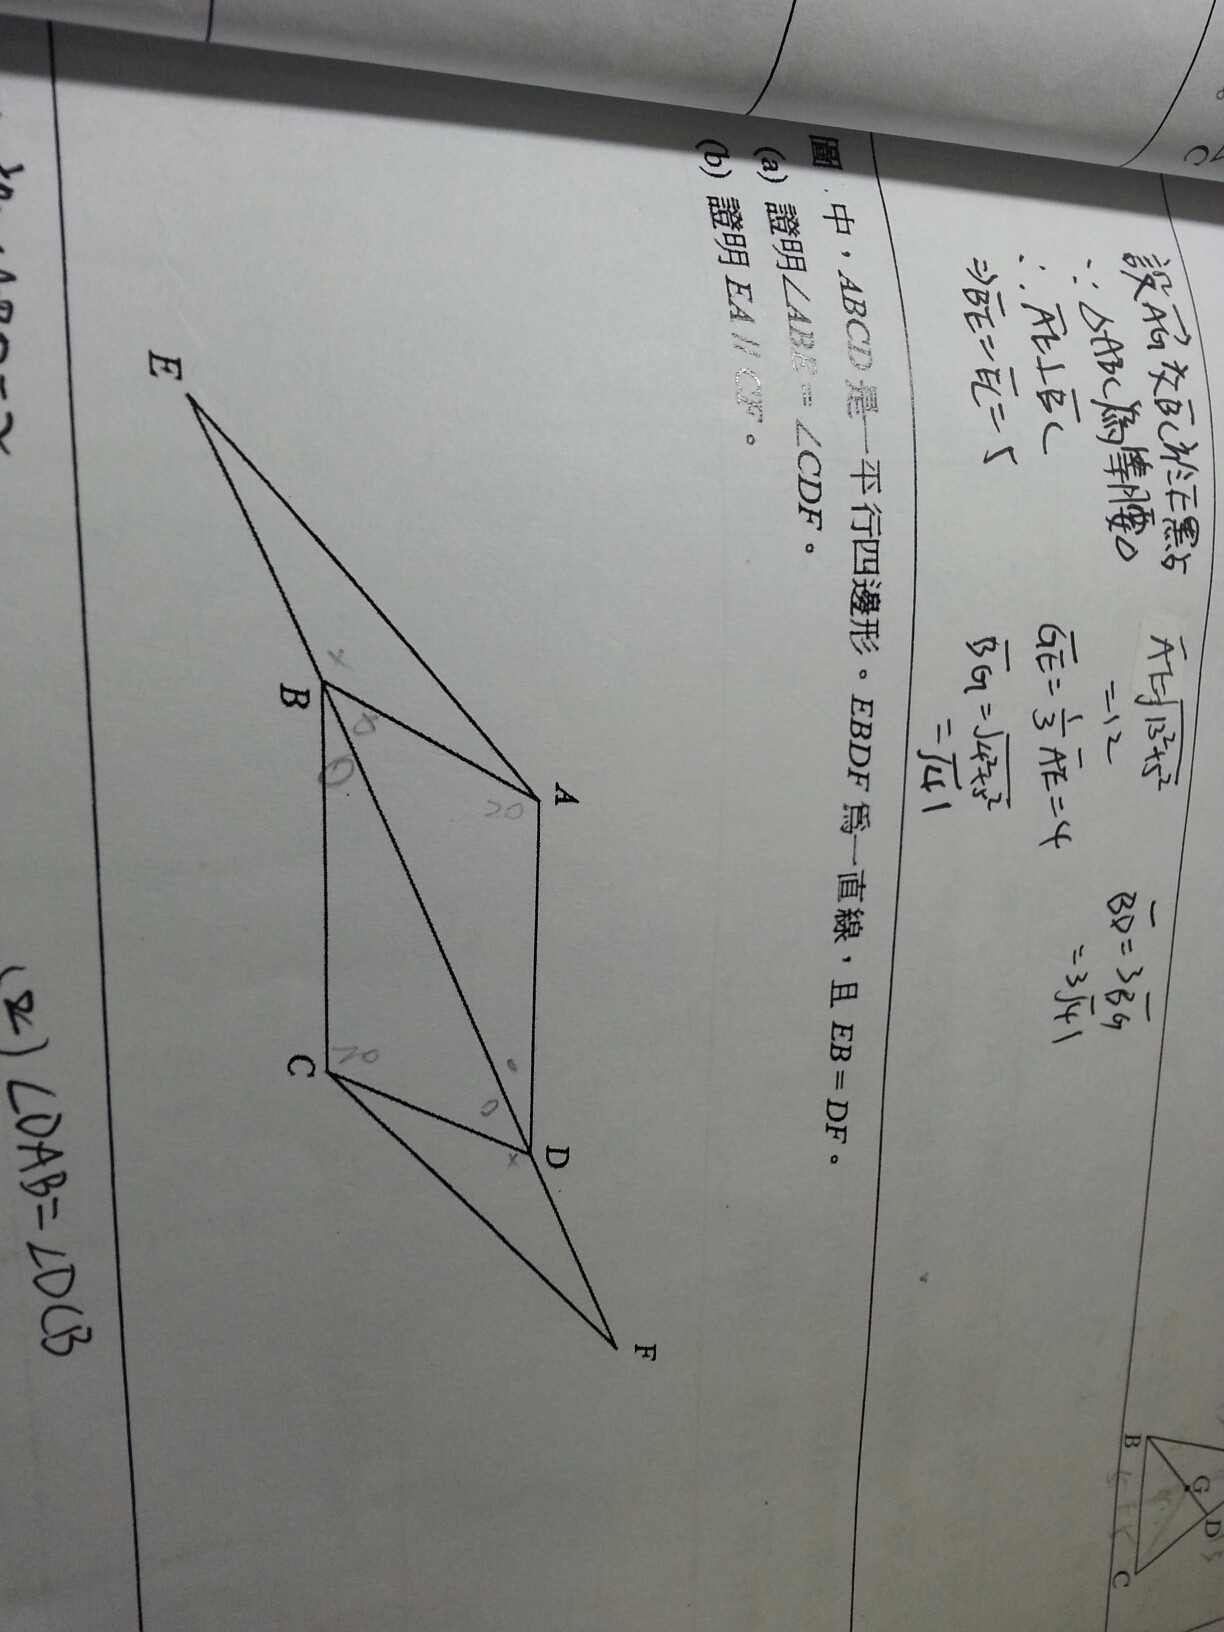 設AG交BC於E點
∵△ABC為等腰△
∴AE⊥BC
⇒BE=EC=5
AE=√13²+5²
=12
GE=1/3AE=4
BG=√4²+5²
=√41
BD=3BG
=3√41
B
G
D
C
C
圖 中，ABCD是一平行四邊形。EBDF為一直線，且EB=DF。
(a) 證明∠ABE=∠CDF。
(b) 證明EA//CF。
A
D
F
E
B
C
20
20
x
x
∠DAB=∠DCB